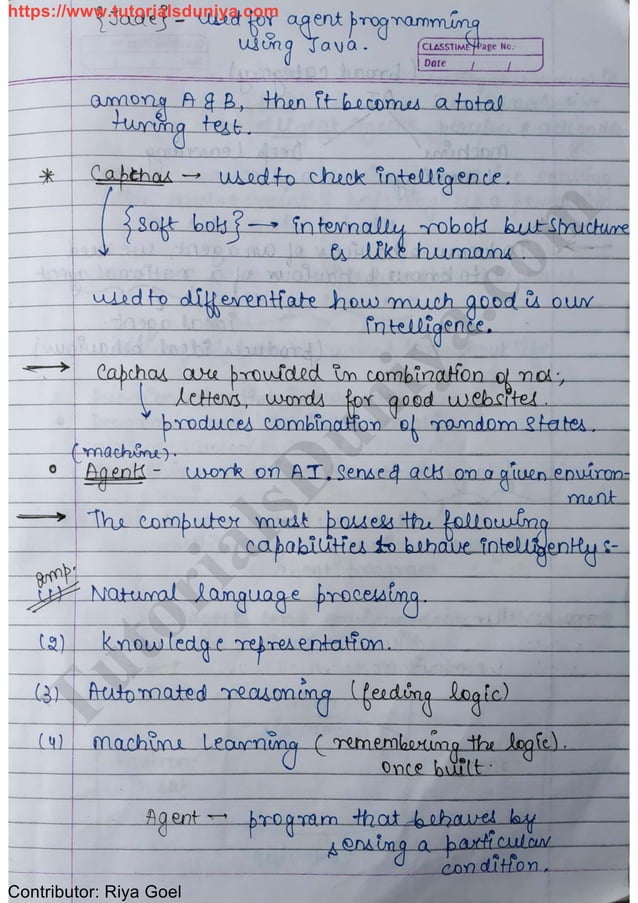 https://www.tutorialsduniya.com
{Jade} - used for agent programming
using Java.
CLASSTIME Page No.
Date / /
among A & B, then it becomes a total
turing test.
* Capchas → used to check intelligence.
{soft bots} → internally robots but structure
is like humans.
used to differentiate how much good is our
intelligence.
→ Capchas are provided in combination of nos,
letters, words for good websites.
produces combination of random states.
(machine).
• Agents - work on AI. Sense & acts on a given environ-
ment
→ The computer must possess the following
capabilities to behave intelligently :-
imp.
(1) Natural language processing.
(2) Knowledge representation.
(3) Automated reasoning (feeding logic)
(4) Machine Learning (remembering the logic).
once built.
Agent → program that behaves by
sensing a particular
condition.
TutorialsDuniya.com
Contributor: Riya Goel